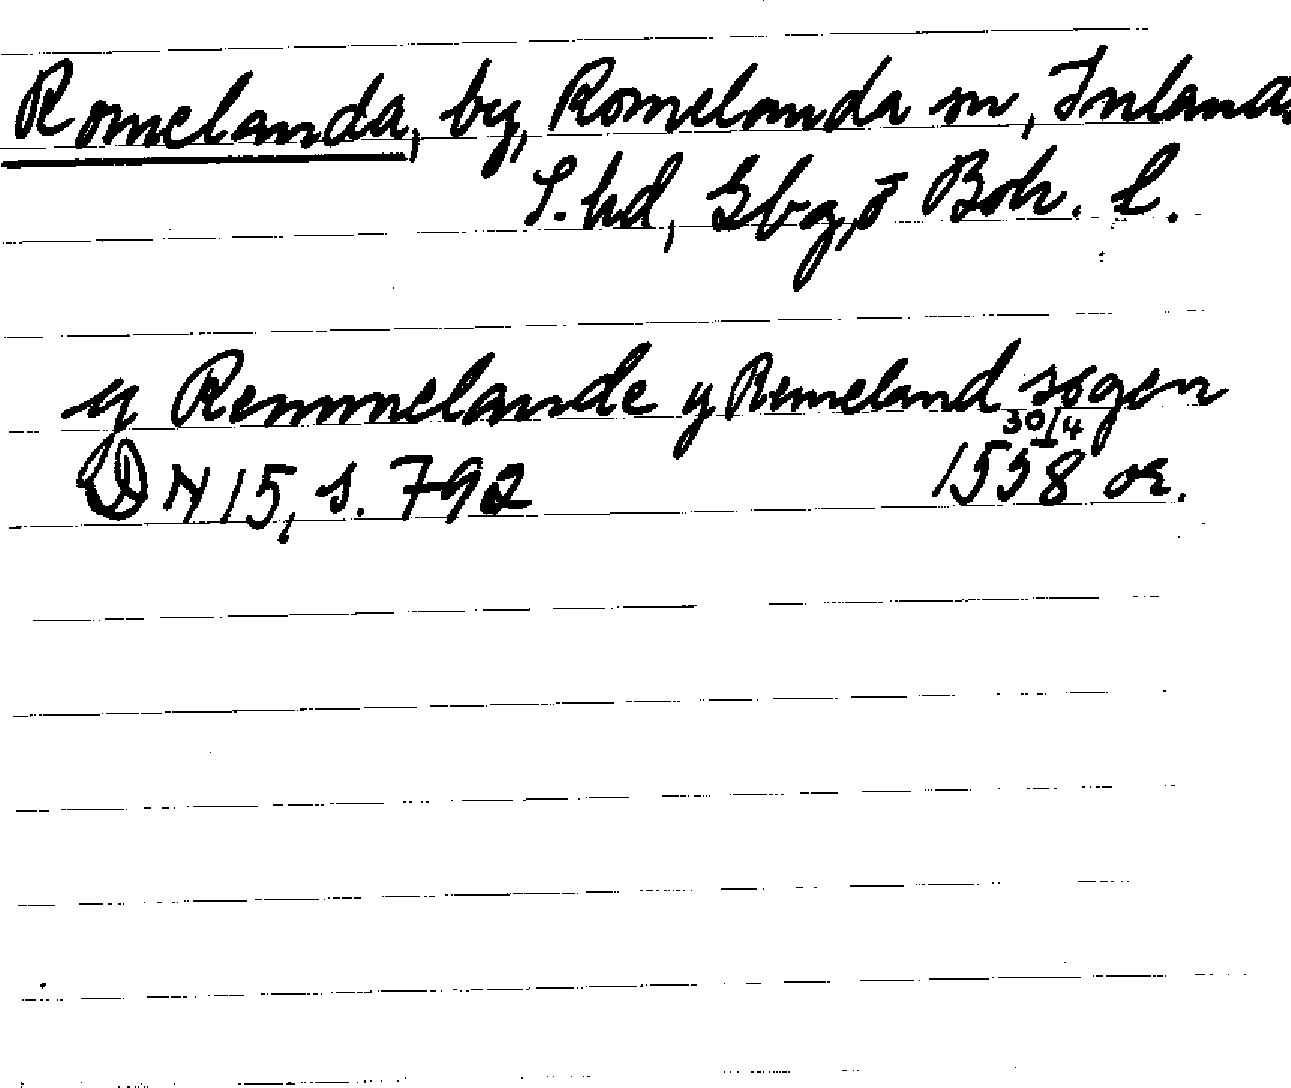 Romelanda, by, Romelanda sn, Inlands
S. hd, Gbg, o Boh. l.
y Remmelande y Remeland sogen
30/4
DN 15, s. 792 1558 or.